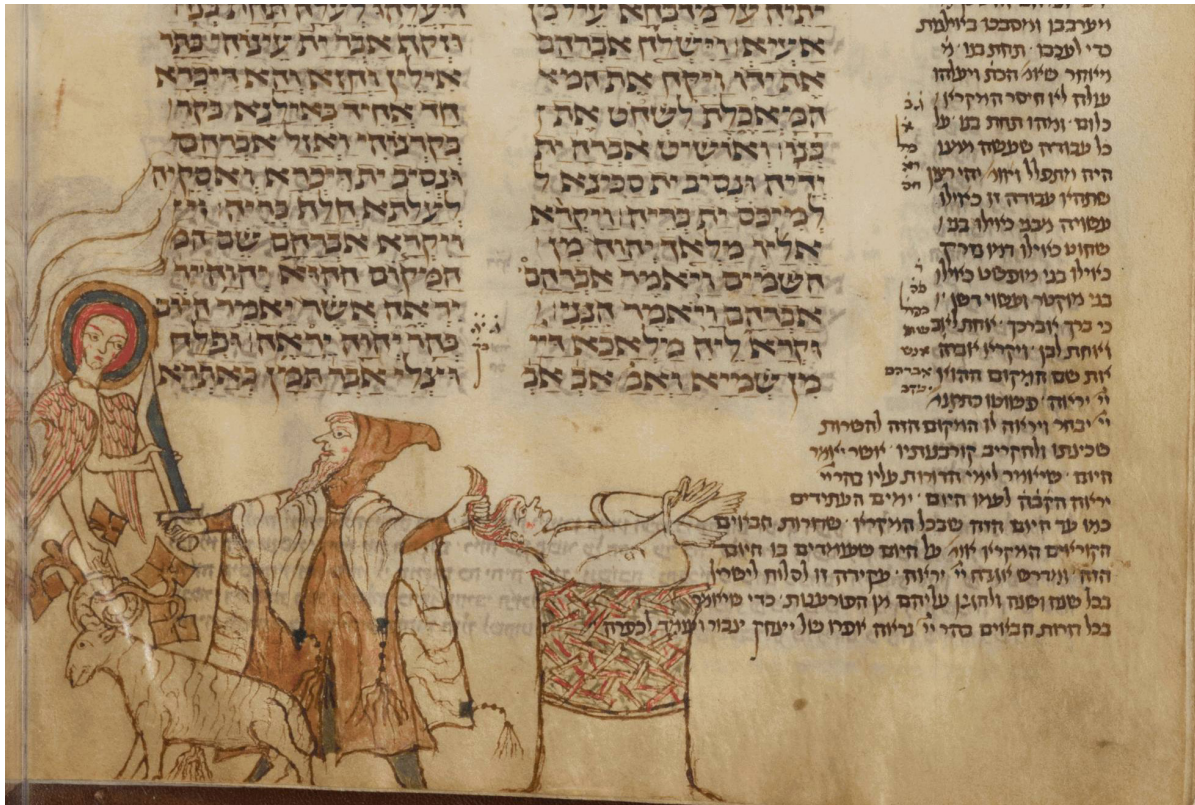 יתיה על מדבחא עיל מן
אעיא וישלח אברהם
את ידו ויקח את המא
המאכלת לשחט את
בנו ואושיט אברהם ית
ידיה ונסיב ית סכינא ל
למיכס ית בריה ויקרא
אליו מלאך יהוה מן
השמים ויאמר אברהם
אברהם ויאמר הנני
וקרא ליה מלאכא דיי
מן שמיא ואמ אב אב
ויעלהו לעלה תחת בנו
וזקף אבר ית עינוהי בתר
אילין וחזא והא דיכרא
חד אחיד באילנא בקר
בקרנוהי ואזל אברהם
ונסיב ית דיכרא ואסקיה
לעלתא חלף בריה וי
ויקרא אברהם שם המ
המקום ההוא יהוה י
יראה אשר יאמר היום
בהר יהוה יראה ופלח
וצלי אבר תמן באתרא
ויערבבן ויסתבכו באילנות
כדי לעכבו תחת בנו מ
מאחר שא' הכת' ויעלהו
עולה לא חיסר המקרא
כלום ומהו תחת בנו על
כל עבודה שעשה ממנו
היה מתפלל ואו' יהי רצון
שתהא עבודה זו כאילו
עשויה בבני כאילו בני
שחוט כאילו דמו זרוק
כאילו בני מופשט כאילו
בני מוקטר ועשוי דשן
כי ברך אברכך אחת לאב
ואחת לבן ויקרא אברהם
את שם המקום ההוא
יי' יראה פשוטו כתרגו'
יי' יבחר ויראה לו המקום הזה להשרות
שכינתו ולהקריב קורבנותיו אשר יאמר
היום שיאמר לימי הדורות עליו בהר יי'
יראה הקבה לעמו היום ימים העתידים
כמו עד היום הזה שבכל המקרא שהדורות הבאים
הקוראים המקרא אומ' על היום שעומדים בו היום
הזה ומדרש אגדה יי' יראה עקידה זו לסלוח לישראל
בכל שנה ושנה עליהם מן הפורענות כדי שיאמר
בכל הדורות הבאים בהר יי' יראה אפרו של יצחק צבור ועומד לכפרה